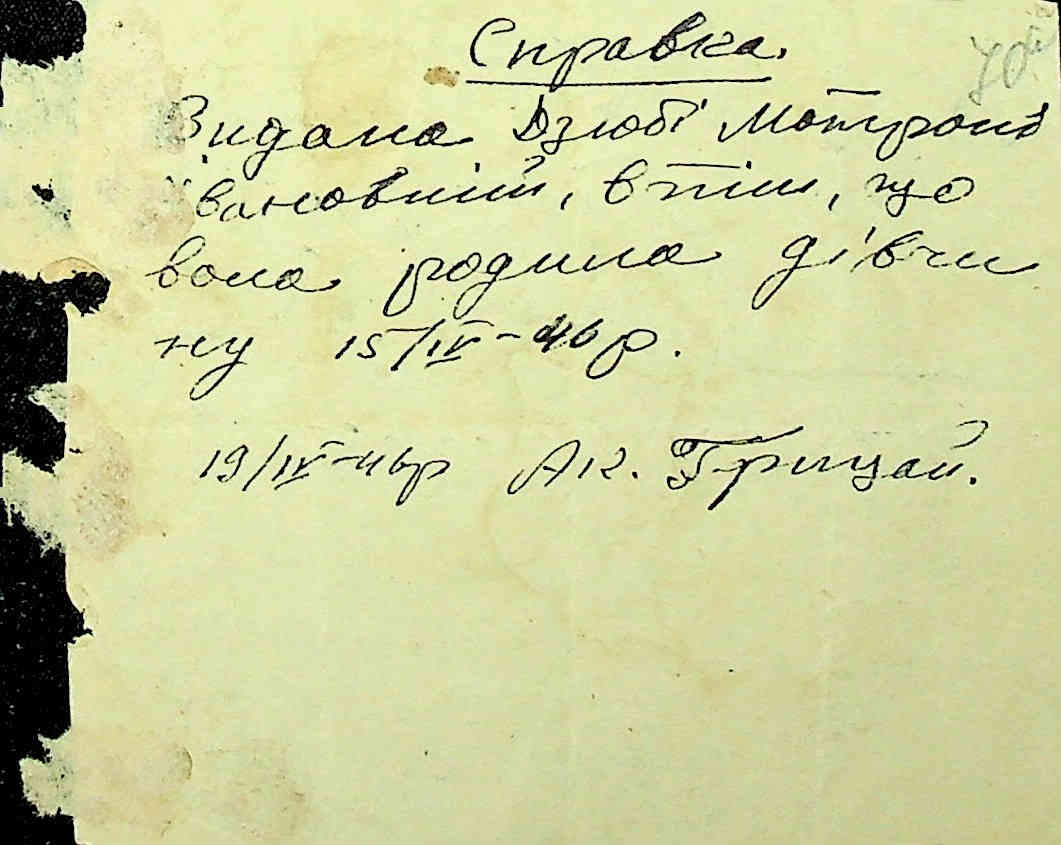 Справка.
Видана Дзюбі Мотроні
Івановній, в тім, що
вона родила дівчи
ну 15/IV-46р.
19/IV-46р Ак. Грицай.